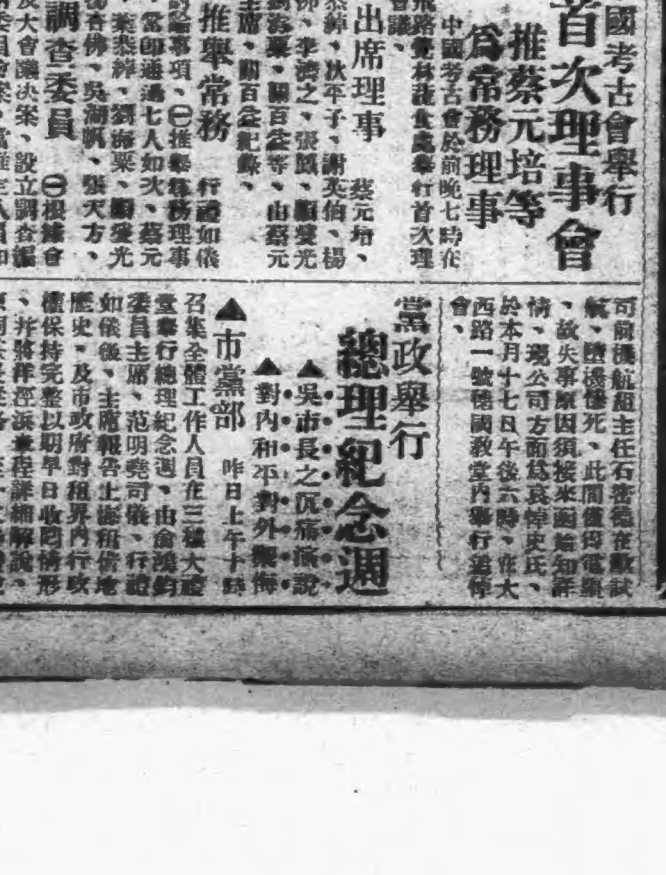 國考古會舉行
首次理事會
推蔡元培等
爲常務理事
中國考古會於前晚七時在
飛路覺林蔬食處舉行首次理
會議、
出席理事 蔡元培、
恭綽、狄平子、謝英伯、楊
佛、李濟之、張鳳、顧燮光
劉海粟、關百益等、由蔡元
主席、關百益紀錄、
行禮如儀
推舉常務
討論事項、㊀推舉常務理事
當即通過七人如次、蔡元
、葉恭綽、劉海粟、顧燮光
楊杏佛、吳湖帆、張天方、
調查委員 ㊀根據會
及大會議決案、設立調查
司前機航組主任石密德在歐試
航、墮機慘死、此間僅得電額
、故失事原因須接來函始知詳
情、現公司方面爲哀悼史氏、
於本月十七日午後六時、在大
西路一號德國教堂內舉行追悼
會、
黨政舉行
總理紀念週
▲吳市長之沉痛演說
▲對內和平對外禦侮
▲市黨部 昨日上午十時
召集全體工作人員在三樓大禮
堂舉行總理紀念週、由俞鴻鈞
委員主席、范明堯司儀、行禮
如儀後、主席報告上海租借地
歷史、及市政府對租界內行政
權保持完整以期早日收回情形
、幷將洋涇浜章程詳細解說、